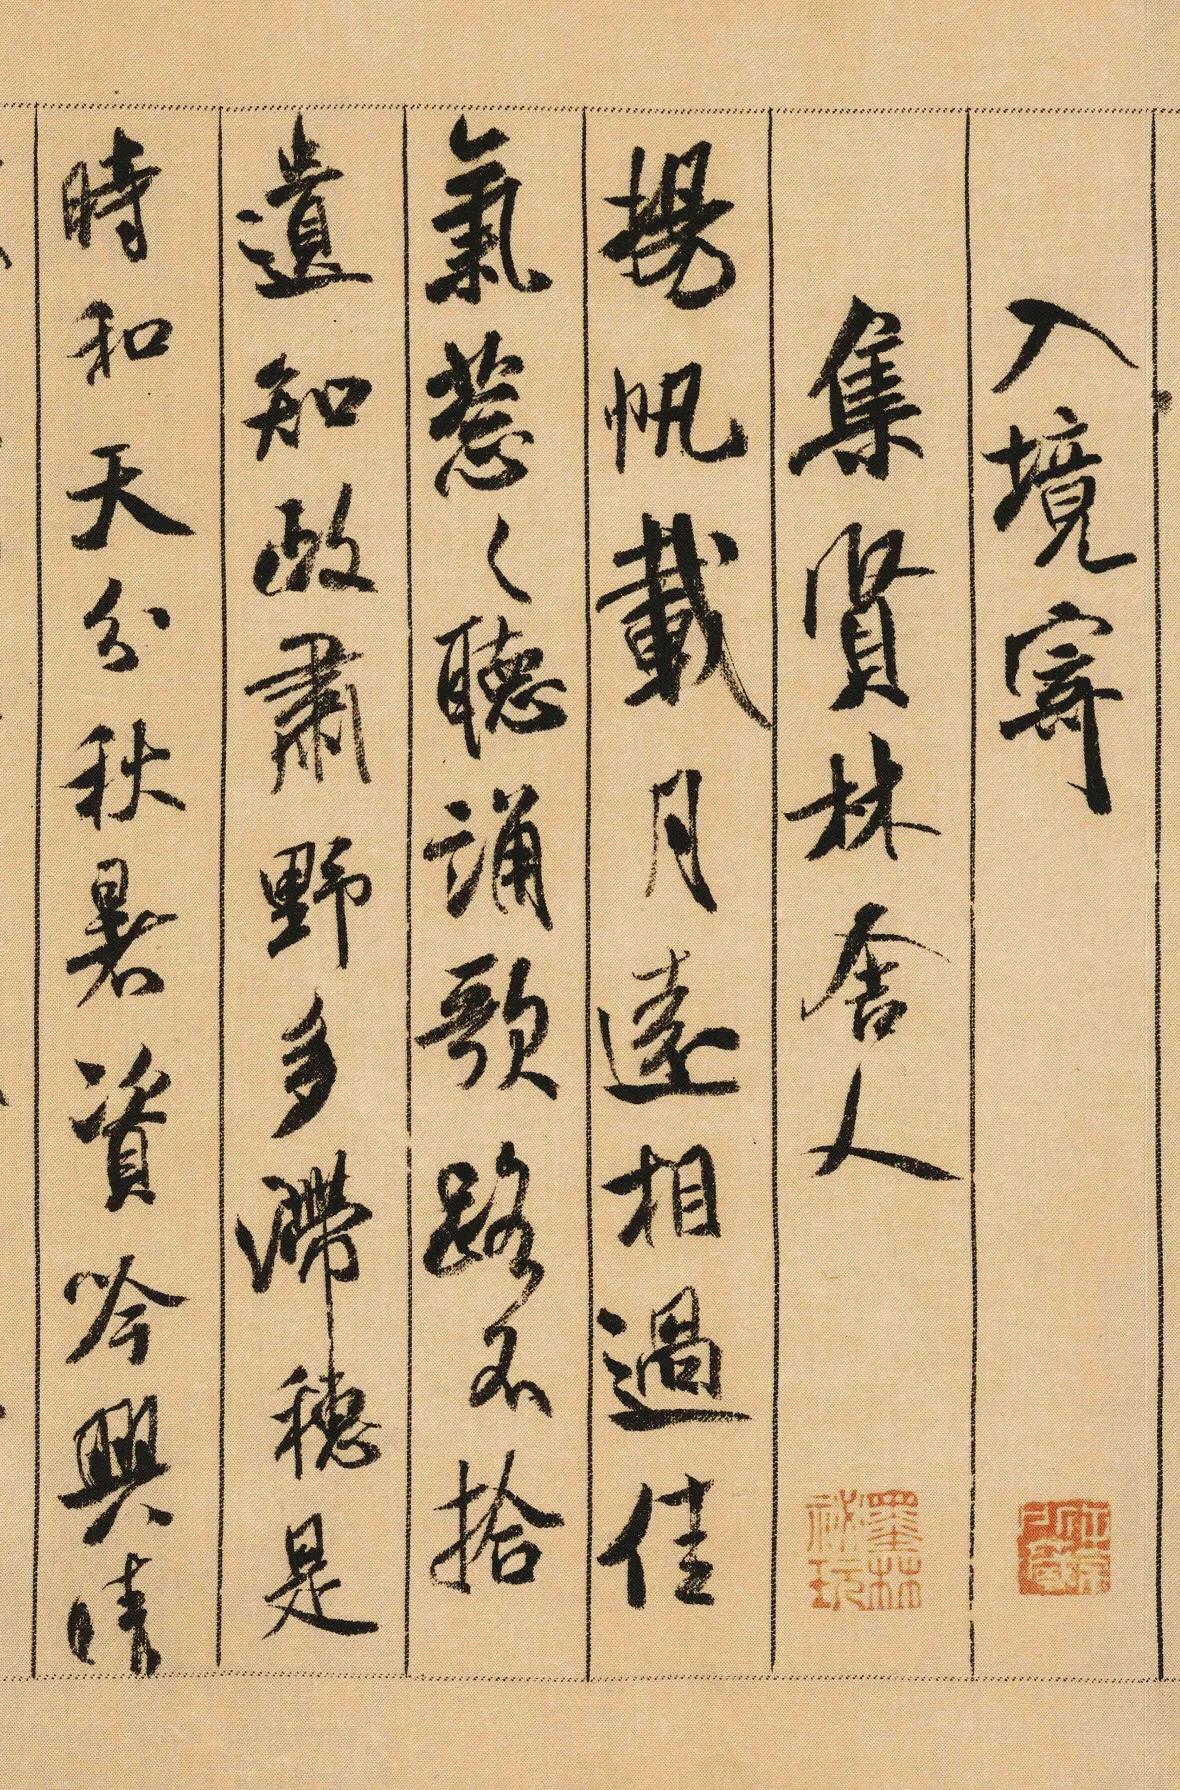 入境寄
集賢林舍人
揚帆載月遠相過佳
氣蔥〻聽誦歌路不拾
遺知政肅野多滯穗是
時和天分秋暑資吟興晴
墨林祕玩